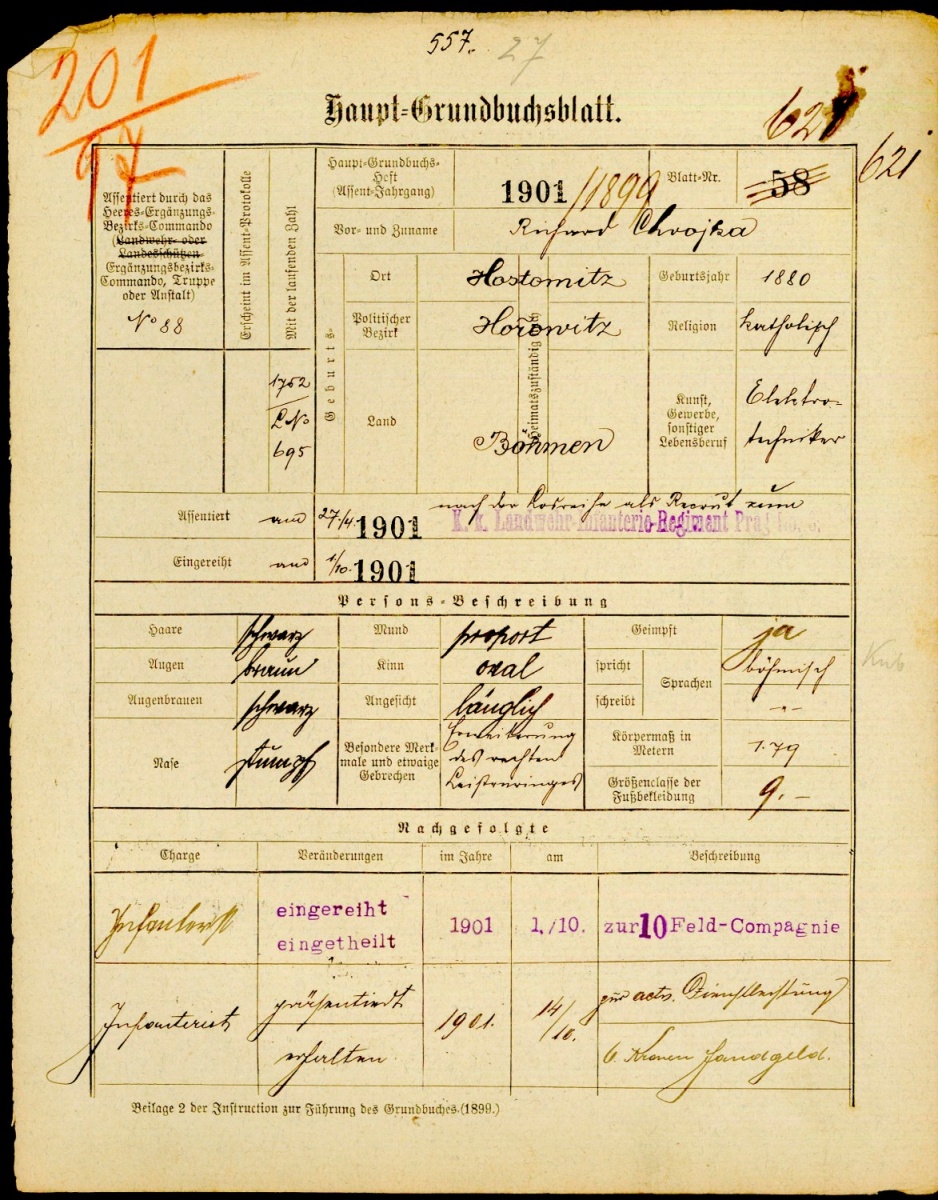 557.
27
201
97
Haupt=Grundbuchsblatt.
621
621
Assentiert durch das
Heeres=Ergänzungs-
Bezirks=Commando
(Landwehr= oder
Landesschützen-
Ergänzungsbezirks-
Commando, Truppe
oder Anstalt)
No 88
Erscheint im Assent=Protokolle
Mit der laufenden Zahl
1752
LNo
695
Haupt=Grundbuchs-
Heft
(Assent=Jahrgang)
1901/1899
Blatt=Nr.
58
Vor= und Zuname
Richard Chvojka
Geburts-
Heimatszuständig
Ort
Hostomitz
Geburtsjahr
1880
Politischer
Bezirk
Hořowitz
Religion
katholisch
Land
Böhmen
Kunst,
Gewerbe,
sonstiger
Lebensberuf
Elektro=
techniker
Assentiert am 27./4 1901 nach der Losreihe als Recrut zum
K. k. Landwehr-Infanterie-Regiment Prag
Eingereiht am 1/10. 1901
Persons=Beschreibung
Haare schwarz Mund proport Geimpft ja
Augen braun Kinn oval spricht Sprachen böhmisch
Augenbrauen schwarz Angesicht länglich schreibt -"-
Nase stumpf
Besondere Merk-
male und etwaige
Gebrechen
Erweiterung
des rechten
Leistenringes
Körpermaß in
Metern
1·79
Größenclasse der
Fußbekleidung
9.-
Nachgefolgte
Charge Veränderungen im Jahre am Beschreibung
Infanterist
eingereiht
eingetheilt
1901 1./10. zur 10 Feld-Compagnie
Infanterist
präsentiert
1901. 14/10.
zur activ. Dienstleistung
erhalten
6 Kronen Handgeld.
Beilage 2 der Instruction zur Führung des Grundbuches. (1899.)